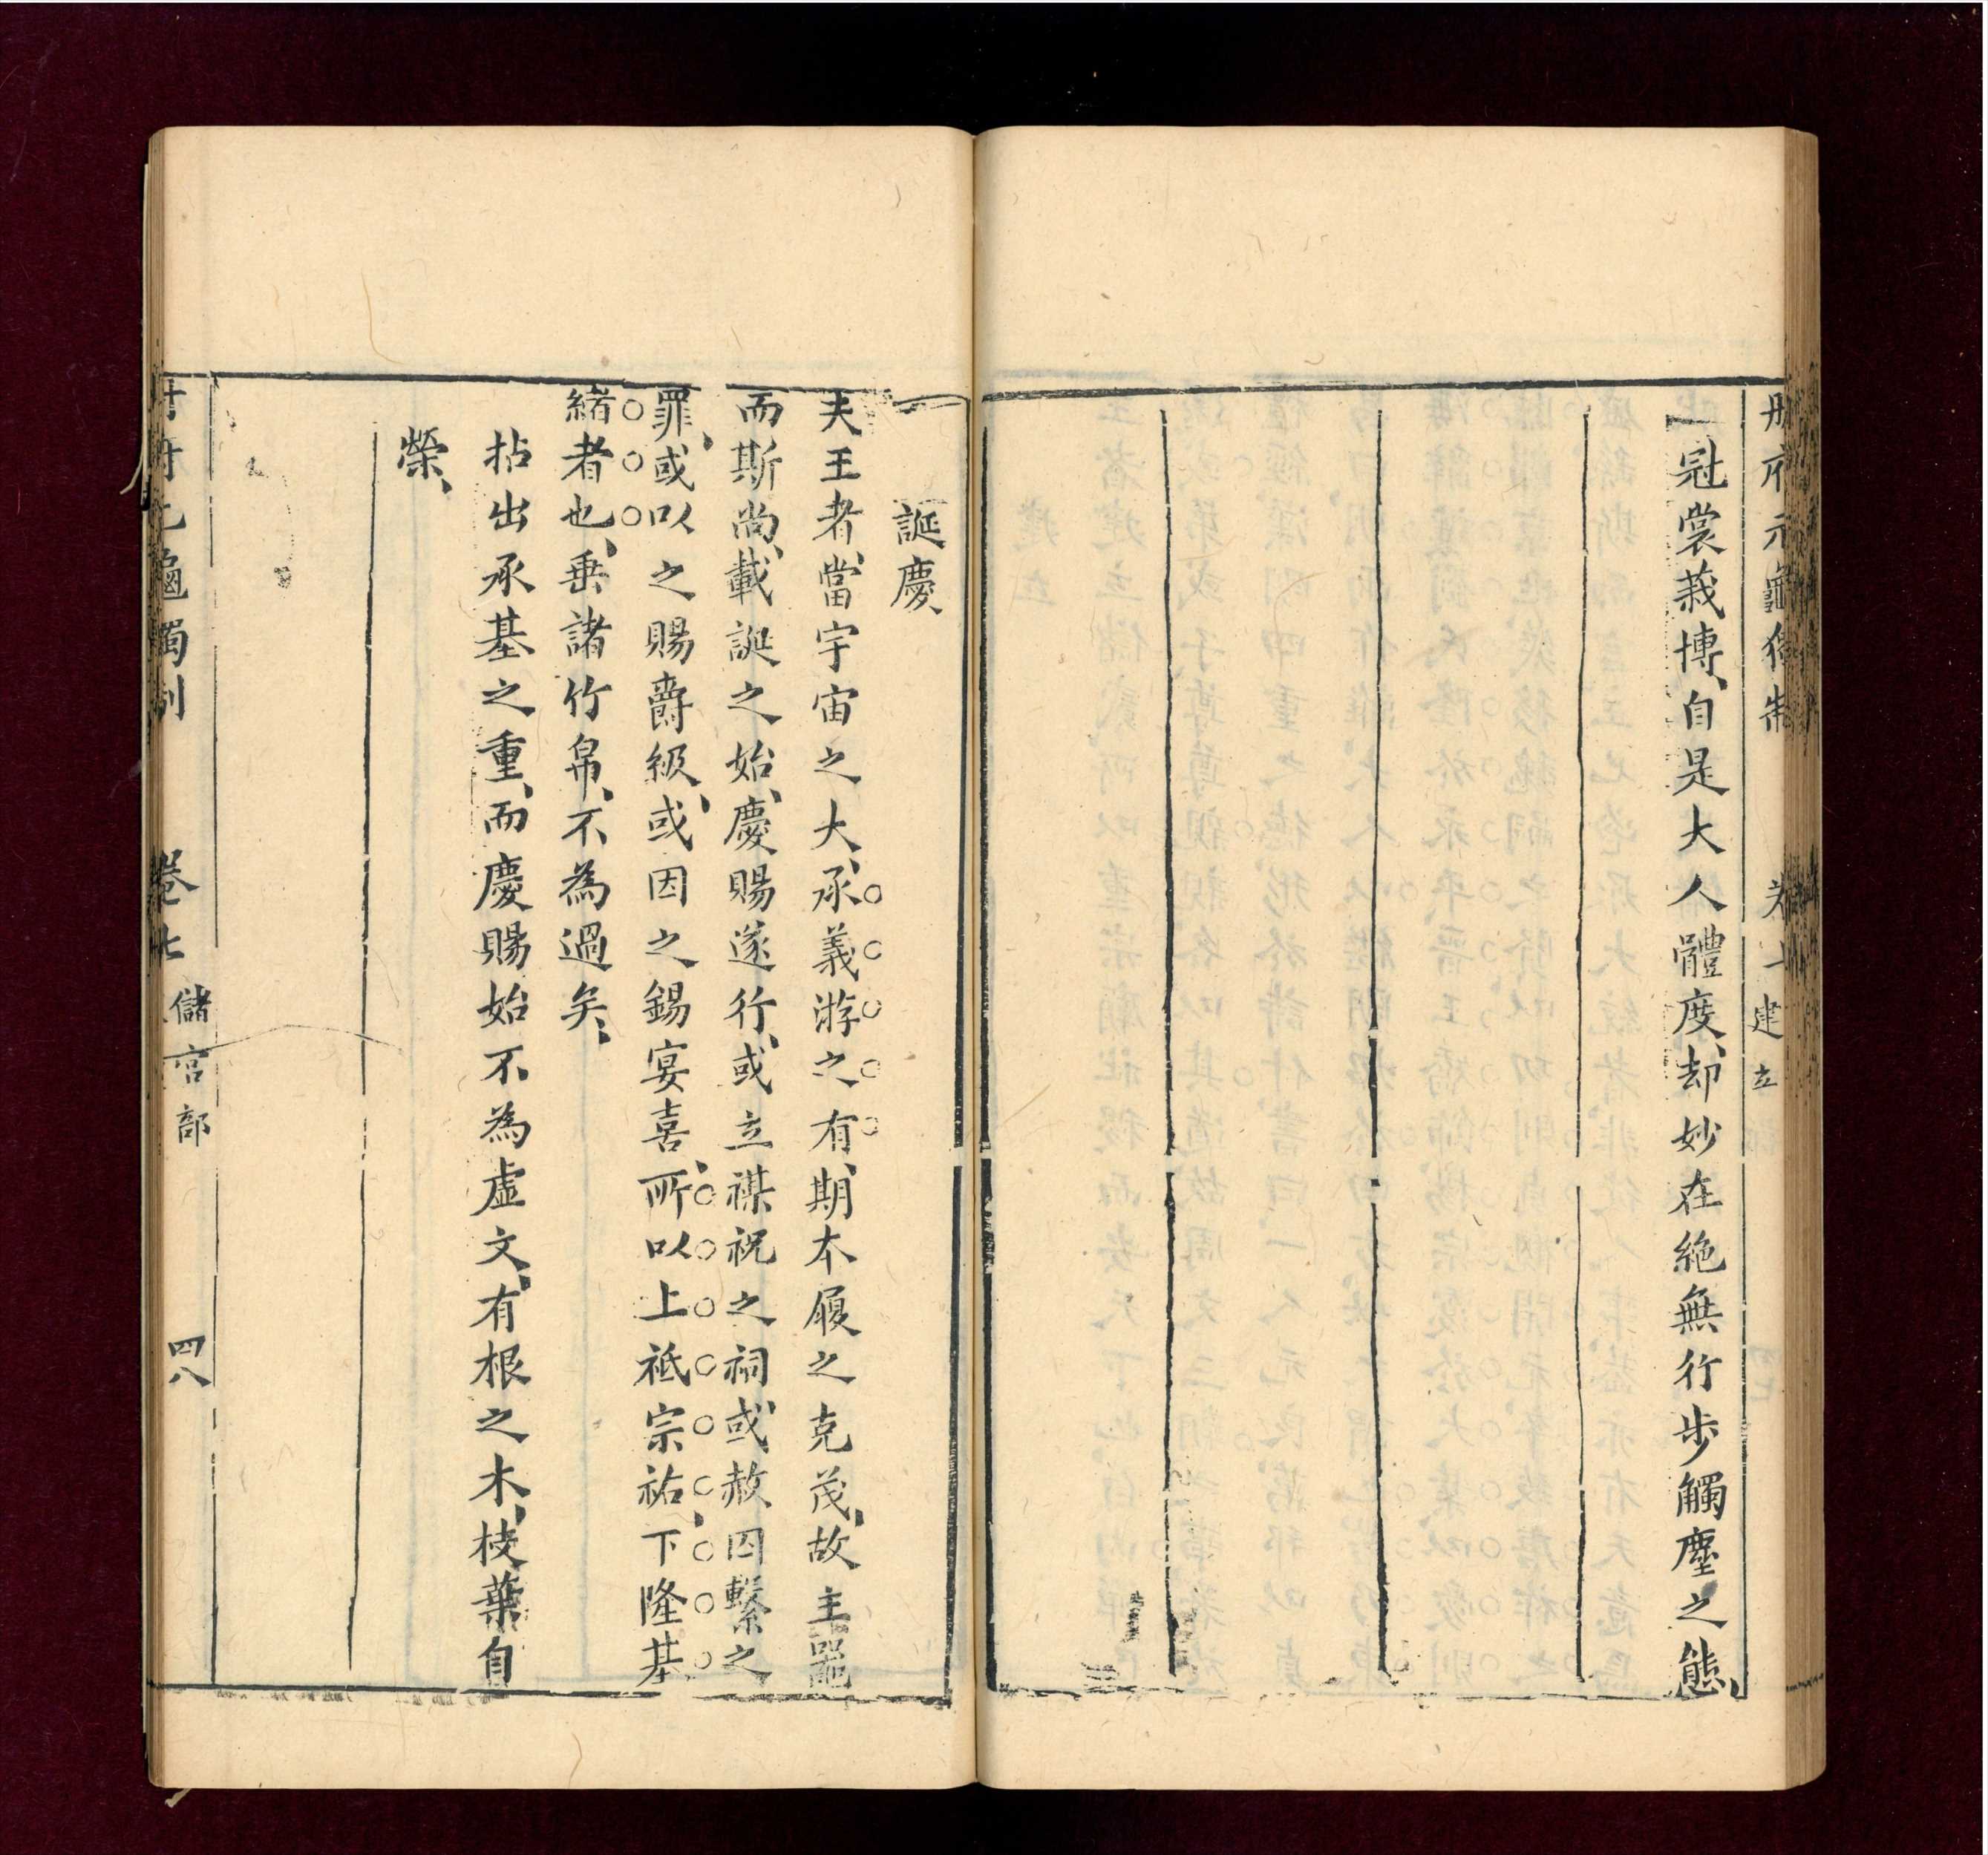 冠裳莪博、自是大人體度、却妙在絶無行步觸塵之態、
建立
誕慶
夫王者、當宇宙之大、承義游之有、期本履之克茂、故主器
而斯尚、載誕之始、慶賜遂行、或立禖祝之祠、或赦囚繫之
罪、或以之賜爵級、或因之錫宴喜、所以上祗宗祐、下隆基
緒者也、垂諸竹帛、不為過矣、
拈出承基之重、而慶賜始不為虛文、有根之木、枝葉自
榮、
卷七 儲宮部 四八